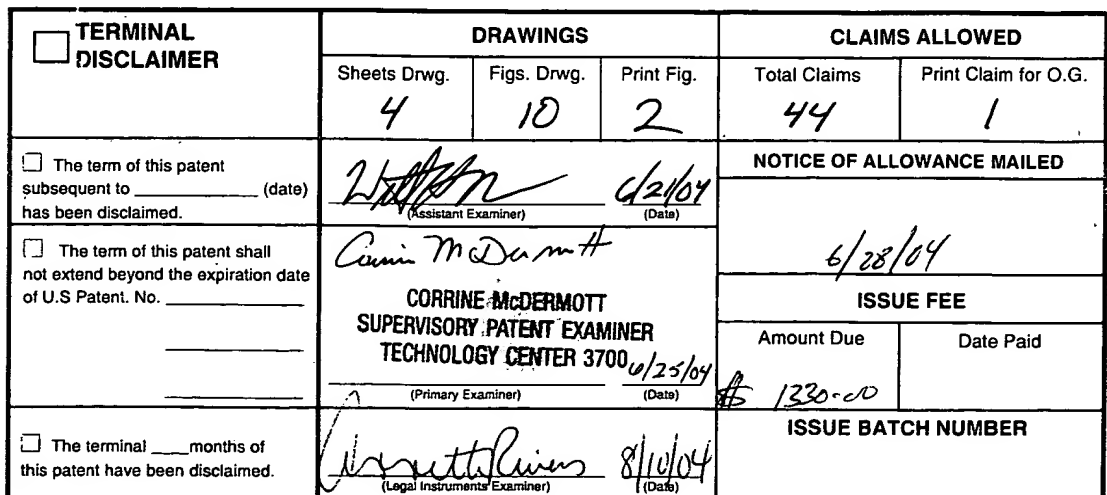 TERMINAL
DISCLAIMER
DRAWINGS
CLAIMS ALLOWED
Sheets Drwg.
Figs. Drwg.
Print Fig.
Total Claims
Print Claim for O.G.
4
10
2
44
1
The term of this patent
subsequent to ____________ (date)
has been disclaimed.
6/21/04
(Assistant Examiner)
(Date)
NOTICE OF ALLOWANCE MAILED
6/28/04
The term of this patent shall
not extend beyond the expiration date
of U.S Patent. No. ____________
Corrine McDermott
CORRINE McDERMOTT
SUPERVISORY PATENT EXAMINER
TECHNOLOGY CENTER 3700
6/25/04
(Primary Examiner)
(Date)
ISSUE FEE
Amount Due
Date Paid
$ 1330-00
The terminal ____months of
this patent have been disclaimed.
8/10/04
(Legal Instruments Examiner)
(Date)
ISSUE BATCH NUMBER